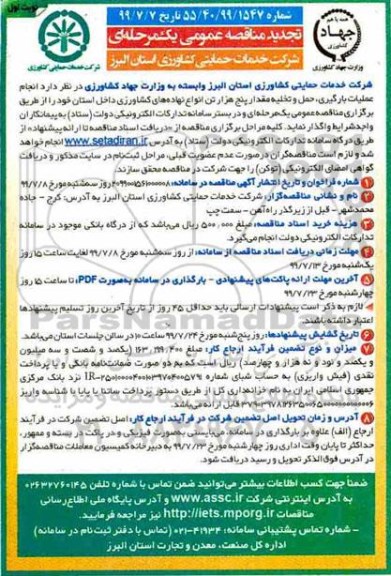 نوبت اول
شماره ۵۵/۴۰/۹۹/۱۵۴۷ تاریخ ۹۹/۷/۷
تجدید مناقصه عمومی یک‌مرحله‌ای
شرکت خدمات حمایتی کشاورزی استان البرز
جهاد
وزارت جهاد کشاورزی
شرکت خدمات حمایتی کشاورزی
شرکت خدمات حمایتی کشاورزی استان البرز وابسته به وزارت جهاد کشاورزی در نظر دارد انجام
عملیات بارگیری، حمل و تخلیه مقدار پنج هزار تن انواع نهاده‌های کشاورزی داخل استان خود را از طریق
برگزاری مناقصه عمومی یک‌مرحله‌ای و در بستر سامانه تدارکات الکترونیکی دولت (ستاد) به پیمانکاران
واجد شرایط واگذار نماید. کلیه مراحل برگزاری مناقصه از دریافت اسناد مناقصه تا ارائه پیشنهاده از
طریق درگاه سامانه تدارکات الکترونیکی دولت (ستاد) به آدرس www.setadiran.ir انجام خواهد
شد و لازم است مناقصه‌گران در صورت عدم عضویت قبلی، مراحل ثبت‌نام در سایت مذکور و دریافت
گواهی امضای الکترونیکی (توکن) را جهت شرکت در مناقصه محقق سازند.
۱ شماره فراخوان و تاریخ انتشار آگهی مناقصه در سامانه: روز سه‌شنبه مورخ ۹۹/۷/۸
۲ نام و نشانی مناقصه‌گزار: شرکت خدمات حمایتی کشاورزی استان البرز به آدرس: کرج - جاده
محمدشهر - قبل از زیرگذر راه‌آهن - سمت چپ
۳ هزینه خرید اسناد مناقصه: مبلغ ۵۰۰,۰۰۰ ریال می‌باشد که از درگاه بانکی موجود در سامانه
تدارکات الکترونیکی دولت انجام می‌گیرد.
۴ مهلت زمانی دریافت اسناد مناقصه از سامانه: از روز سه‌شنبه مورخ ۹۹/۷/۸ لغایت ساعت ۱۵ روز
یکشنبه مورخ ۹۹/۷/۱۳
۵ آخرین مهلت ارائه پاکت‌های پیشنهادی - بارگذاری در سامانه به‌صورت PDF: تا ساعت ۱۵ روز
چهارشنبه مورخ ۹۹/۷/۲۳
لازم به ذکر است پیشنهادات ارسالی باید حداقل ۴۵ روز از تاریخ آخرین روز تسلیم پیشنهادها
اعتبار داشته باشند.
۶ تاریخ گشایش پیشنهادها: روز پنج‌شنبه مورخ ۹۹/۷/۲۴ ساعت ۱۰ در سالن جلسات استان می‌باشد.
۷ میزان و نوع تضمین فرآیند ارجاع کار: مبلغ ۱۶۳,۱۹۹,۴۰۰ (یکصد و شصت و سه میلیون
و یکصد و نود و نه هزار و چهارصد) ریال است که به دو صورت ضمانت‌نامه بانکی و یا پرداخت
نقدی (فیش واریزی) به حساب شبای شماره نزد بانک مرکزی
جمهوری اسلامی ایران به نام خزانه‌داری کل از طریق دستور پرداخت ساتنا یا پایا با شناسه واریز
قابل ارائه می‌باشد.
۸ آدرس و زمان تحویل اصل تضمین شرکت در فرآیند ارجاع کار: اصل تضمین شرکت در فرآیند
ارجاع (الف) علاوه بر بارگذاری در سامانه می‌بایستی به‌صورت فیزیکی و در پاکت دربسته و ممهور،
حداکثر تا پایان وقت اداری روز چهارشنبه مورخ ۹۹/۷/۲۳ به دبیرخانه کمیسیون معاملات مناقصه‌گزار
در آدرس فوق‌الذکر تحویل و رسید دریافت شود.
ضمناً جهت کسب اطلاعات بیشتر می‌توانید ضمن تماس با شماره تلفن ۰۲۶۳۲۷۶۰۱۴۵
به آدرس اینترنتی شرکت www.assc.ir و آدرس پایگاه ملی اطلاع‌رسانی
مناقصات http://iets.mporg.ir نیز مراجعه فرمایید.
- شماره تماس پشتیبانی سامانه: ۴۱۹۳۴-۰۲۱ (تماس با دفتر ثبت‌نام در سامانه)
اداره کل صنعت، معدن و تجارت استان البرز